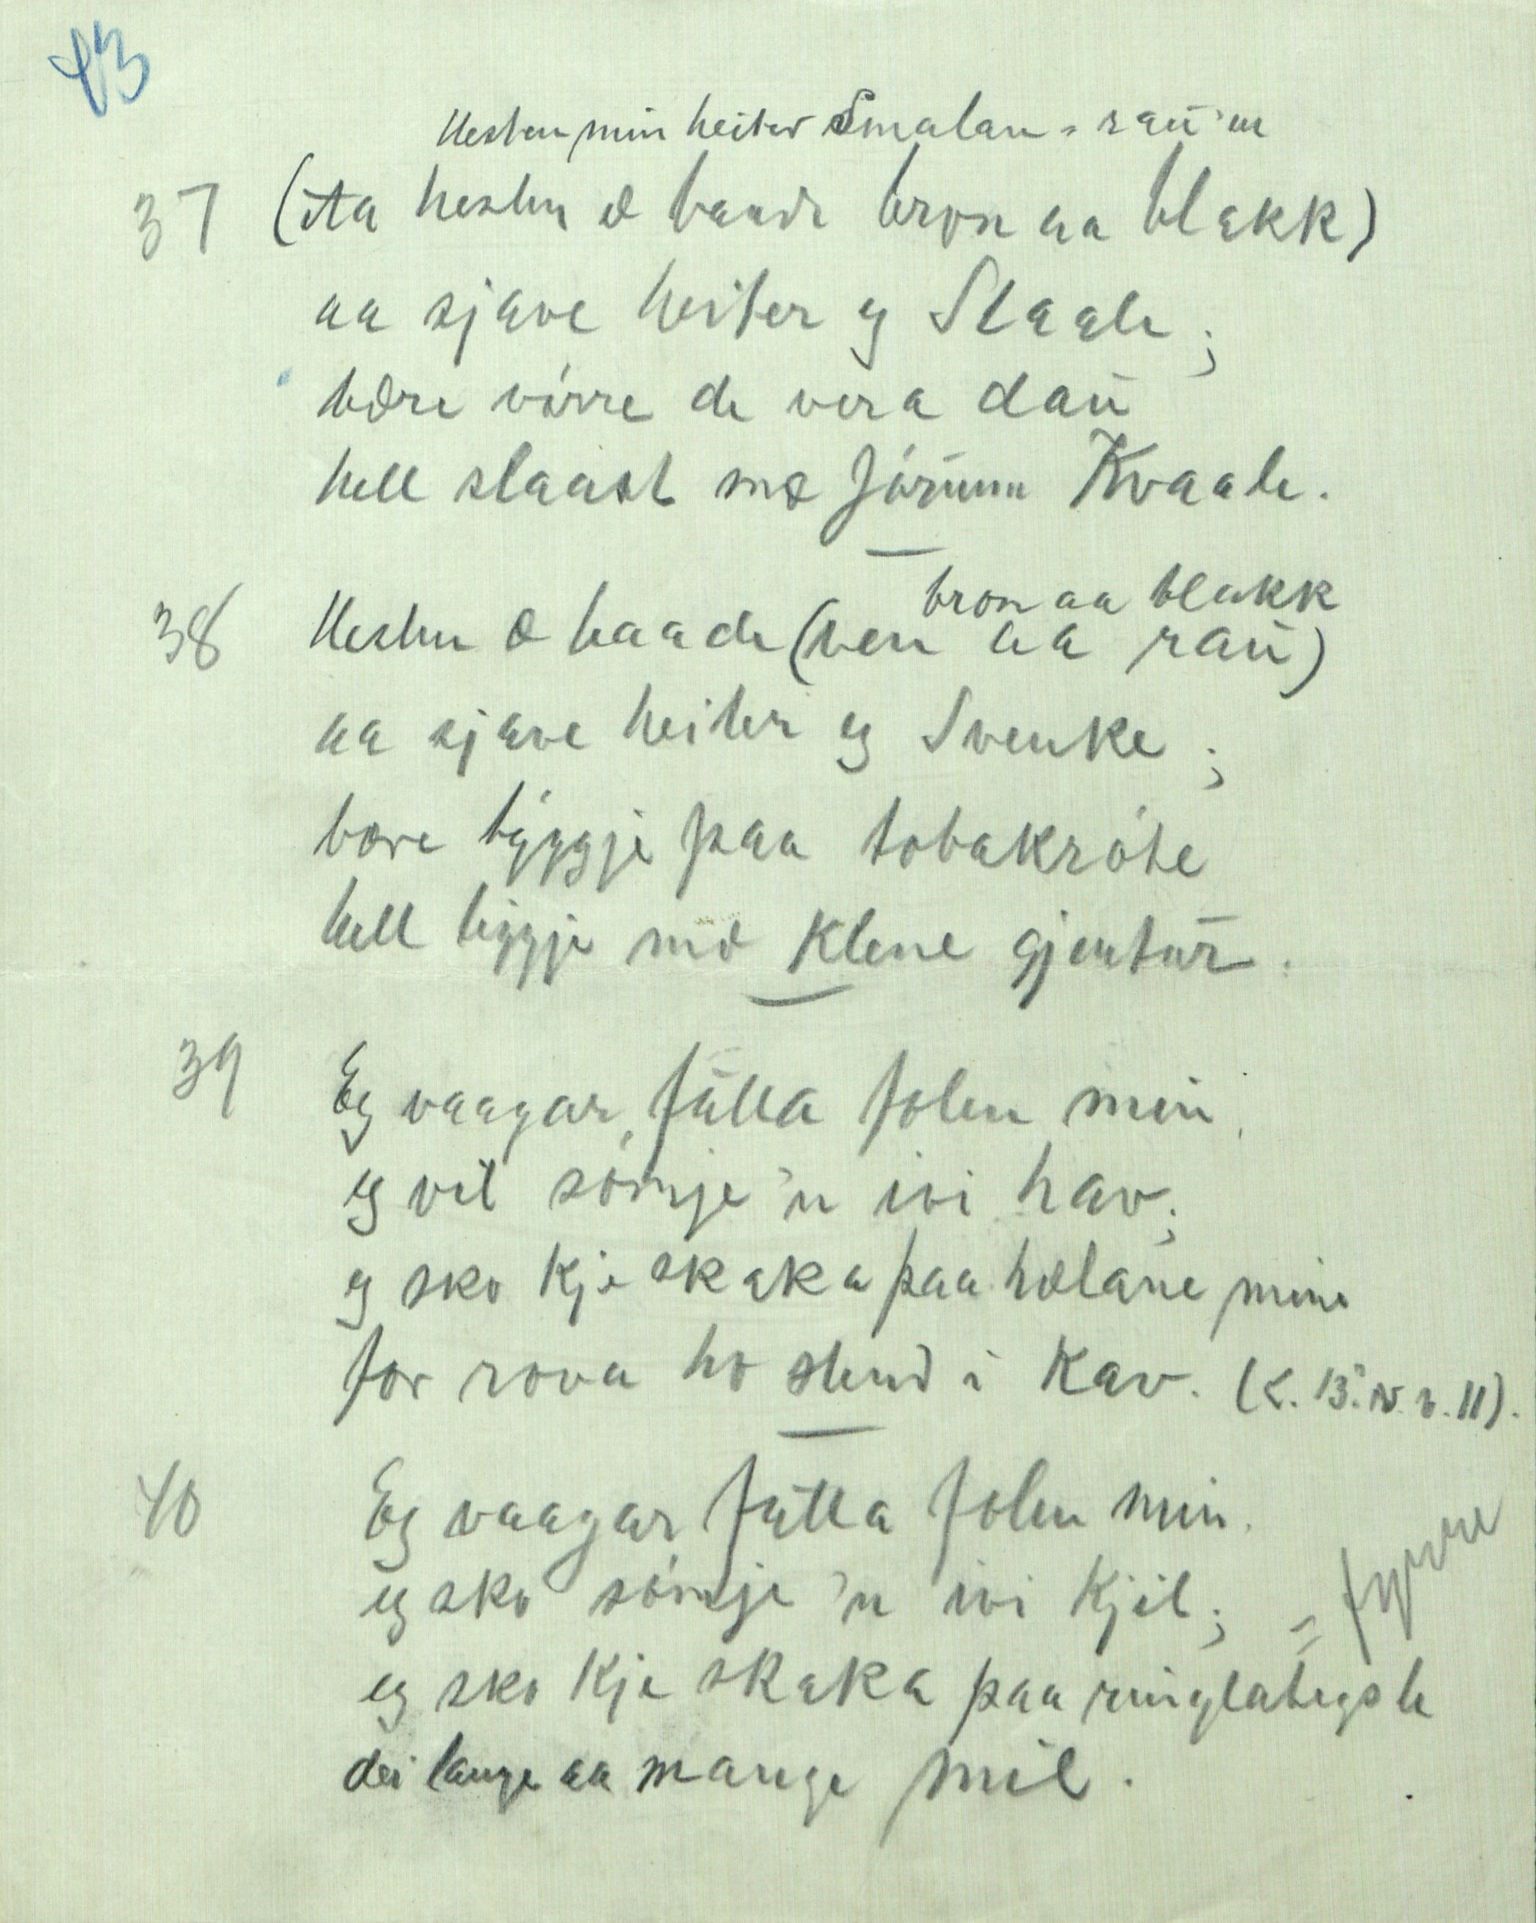 43
Hesten min heiter Smalan-rau'en
37 (Aa hesten æ baade bron aa blakk)
aa sjave heiter eg Staale;
bære vórre de vera dau
hell slaast mæ Jórunn Kvaale.
bron aa blakk
38 Hesten æ baade (ven aa rau)
aa sjave heiter eg Svenke;
bære tyggje paa tobakróte
hell liggje mæ klene gjentur.
39 Eg vaagar, fulla folen min,
eg vil sómje 'n ivi hav;
eg sko kje skaka paa hælane mine
for rova ho stend i kav. (L. 13. IV. b. 11).
40 Eg vaagar fulla folen min.
eg sko sómje 'n ivi kjil; =
eg sko kje skaka paa
dei lange aa mange mil.